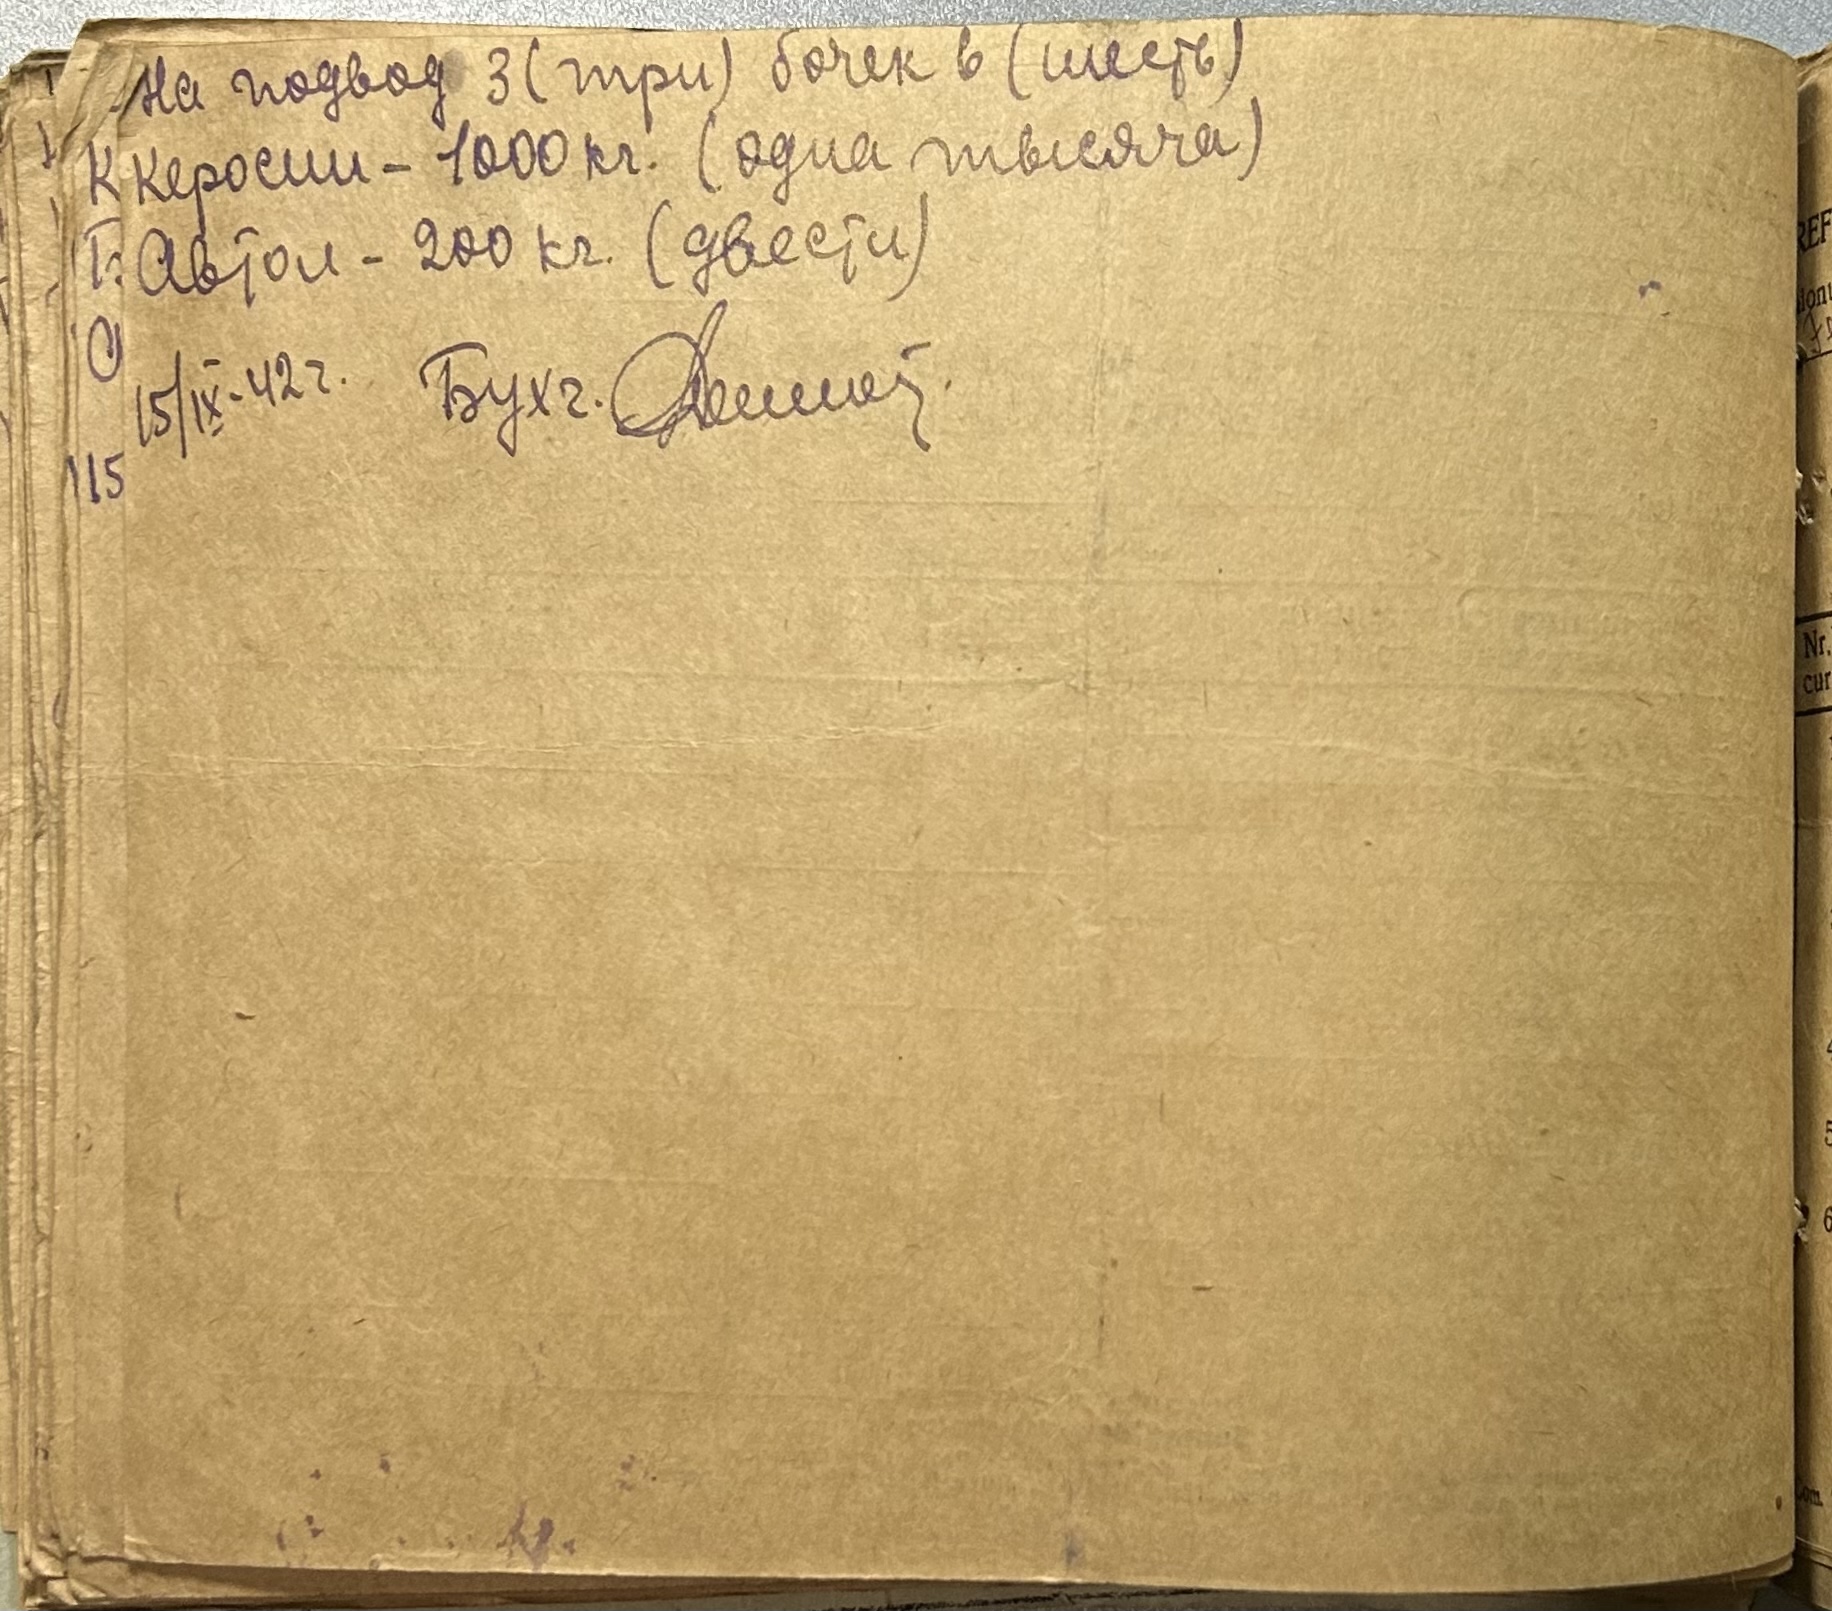 На подвод 3 (три) бочек 6 (шесть)
Керосин - 1000 кг. (одна тысяча)
Автол - 200 кг. (двести)
15/IX-42 г. Бухг.
К
Б
О
15
REF
Nr.
cur
5
6